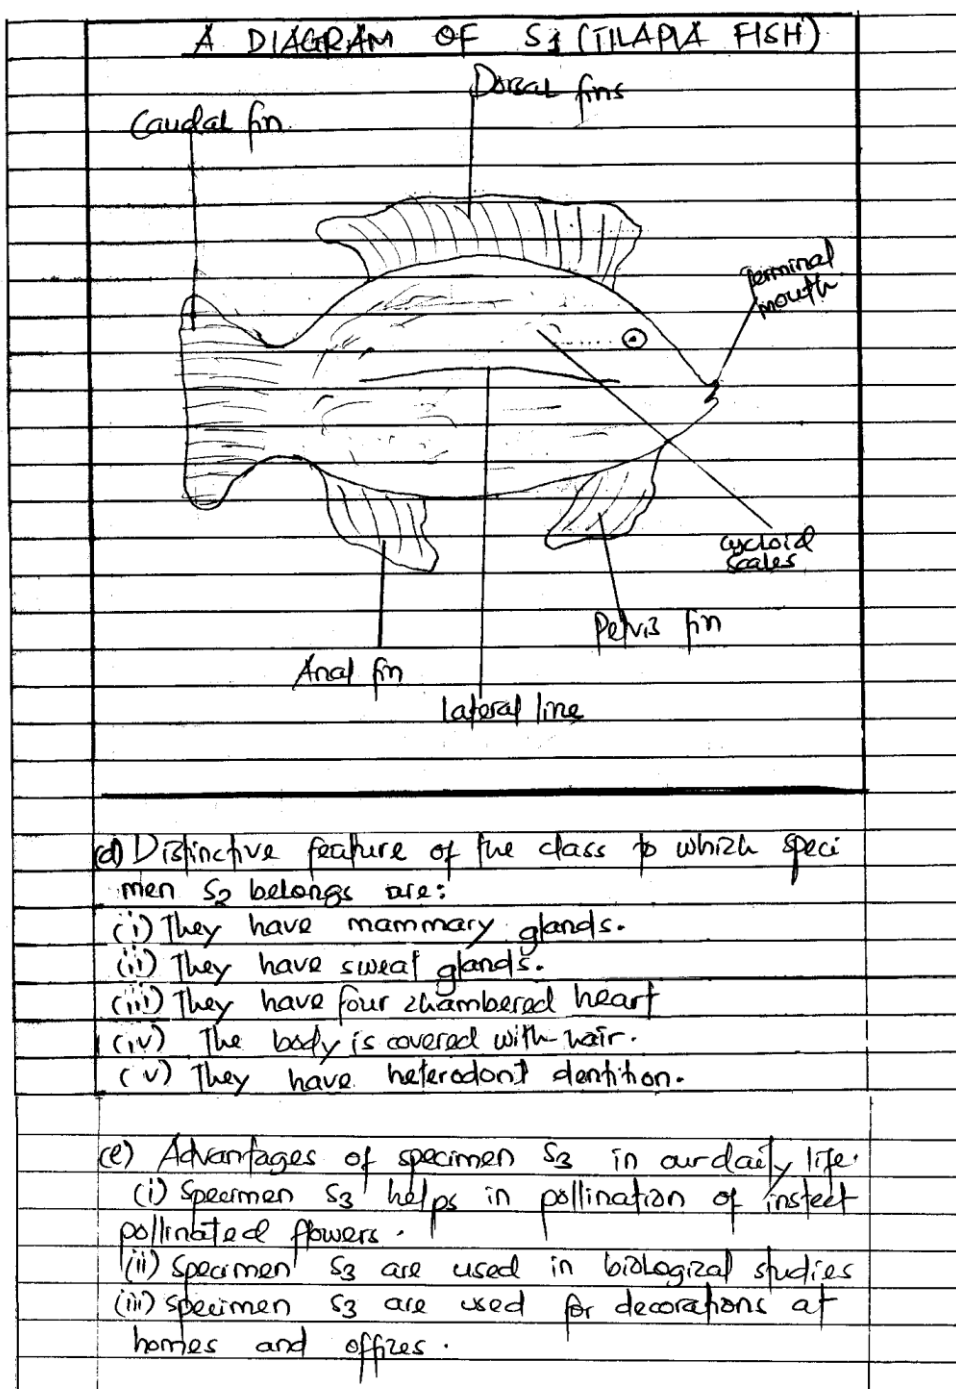 A DIAGRAM OF S1 (TILAPIA FISH)
Dorsal fins
Caudal fin
Terminal
mouth
cycloid
scales
Pelvis fin
Anal fin
lateral line
(d) Distinctive feature of the class to which speci
men S2 belongs are:
(i) They have mammary glands.
(ii) They have sweat glands.
(iii) They have four chambered heart
(iv) The body is covered with hair.
(v) They have heterodont dentition.
(e) Advantages of specimen S3 in our daily life.
(i) Specimen S3 helps in pollination of instect
pollinated flowers.
(ii) Specimen S3 are used in biological studies
(iii) Specimen S3 are used for decorations at
homes and offices.